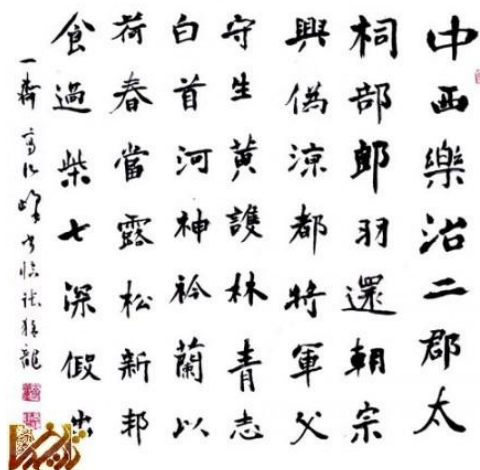 中西樂治二郡太
祠部郎羽還朝宗
興偽涼都將軍父
守生黃護林青志
白首河神衿蘭以
荷春當露松新邦
食過柴七深假出
一齋 高 峰書臨張猛龍